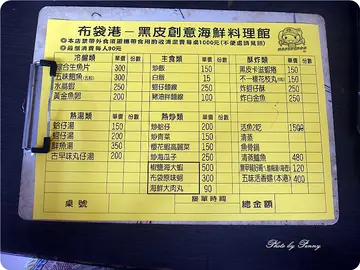 布袋港－黑皮創意海鮮料理館
◎本店禁帶外食湯鍋帶食用酌收清潔費每桌1000元(不便處請見諒)
◎最低消費每人90元
冷盤類 單價 份數 主食類 單價 份數 酥炸類 單價 份數
綜合生魚片 300 炒飯 150 黑皮卡滋蝦捲 150
五味鮑魚 300 白飯 15 不一樣花枝丸 150
水晶蝦 250 蚵仔麵線 250 炸蚵仔酥 250
黃金魚卵 200 豬油拌麵線 100 炸白金魚 250
熱湯類 單價 份數 熱炒類 單價 份數
蛤仔湯 150 炒蛤仔 200 活魚2吃 1500
蚵仔湯 200 炒青菜 150 清蒸魚
鮮魚湯 350 櫻花蝦高麗菜 150 魚骨鍋
古早味丸仔湯 200 炒海瓜子 250 清蒸鱸魚 480
椒鹽海大蝦 500 120
布袋原味蚵 300 五味活香螺(本港) 400
海鮮大肉丸 90
桌號 開單時間 總金額
Photo by Penny